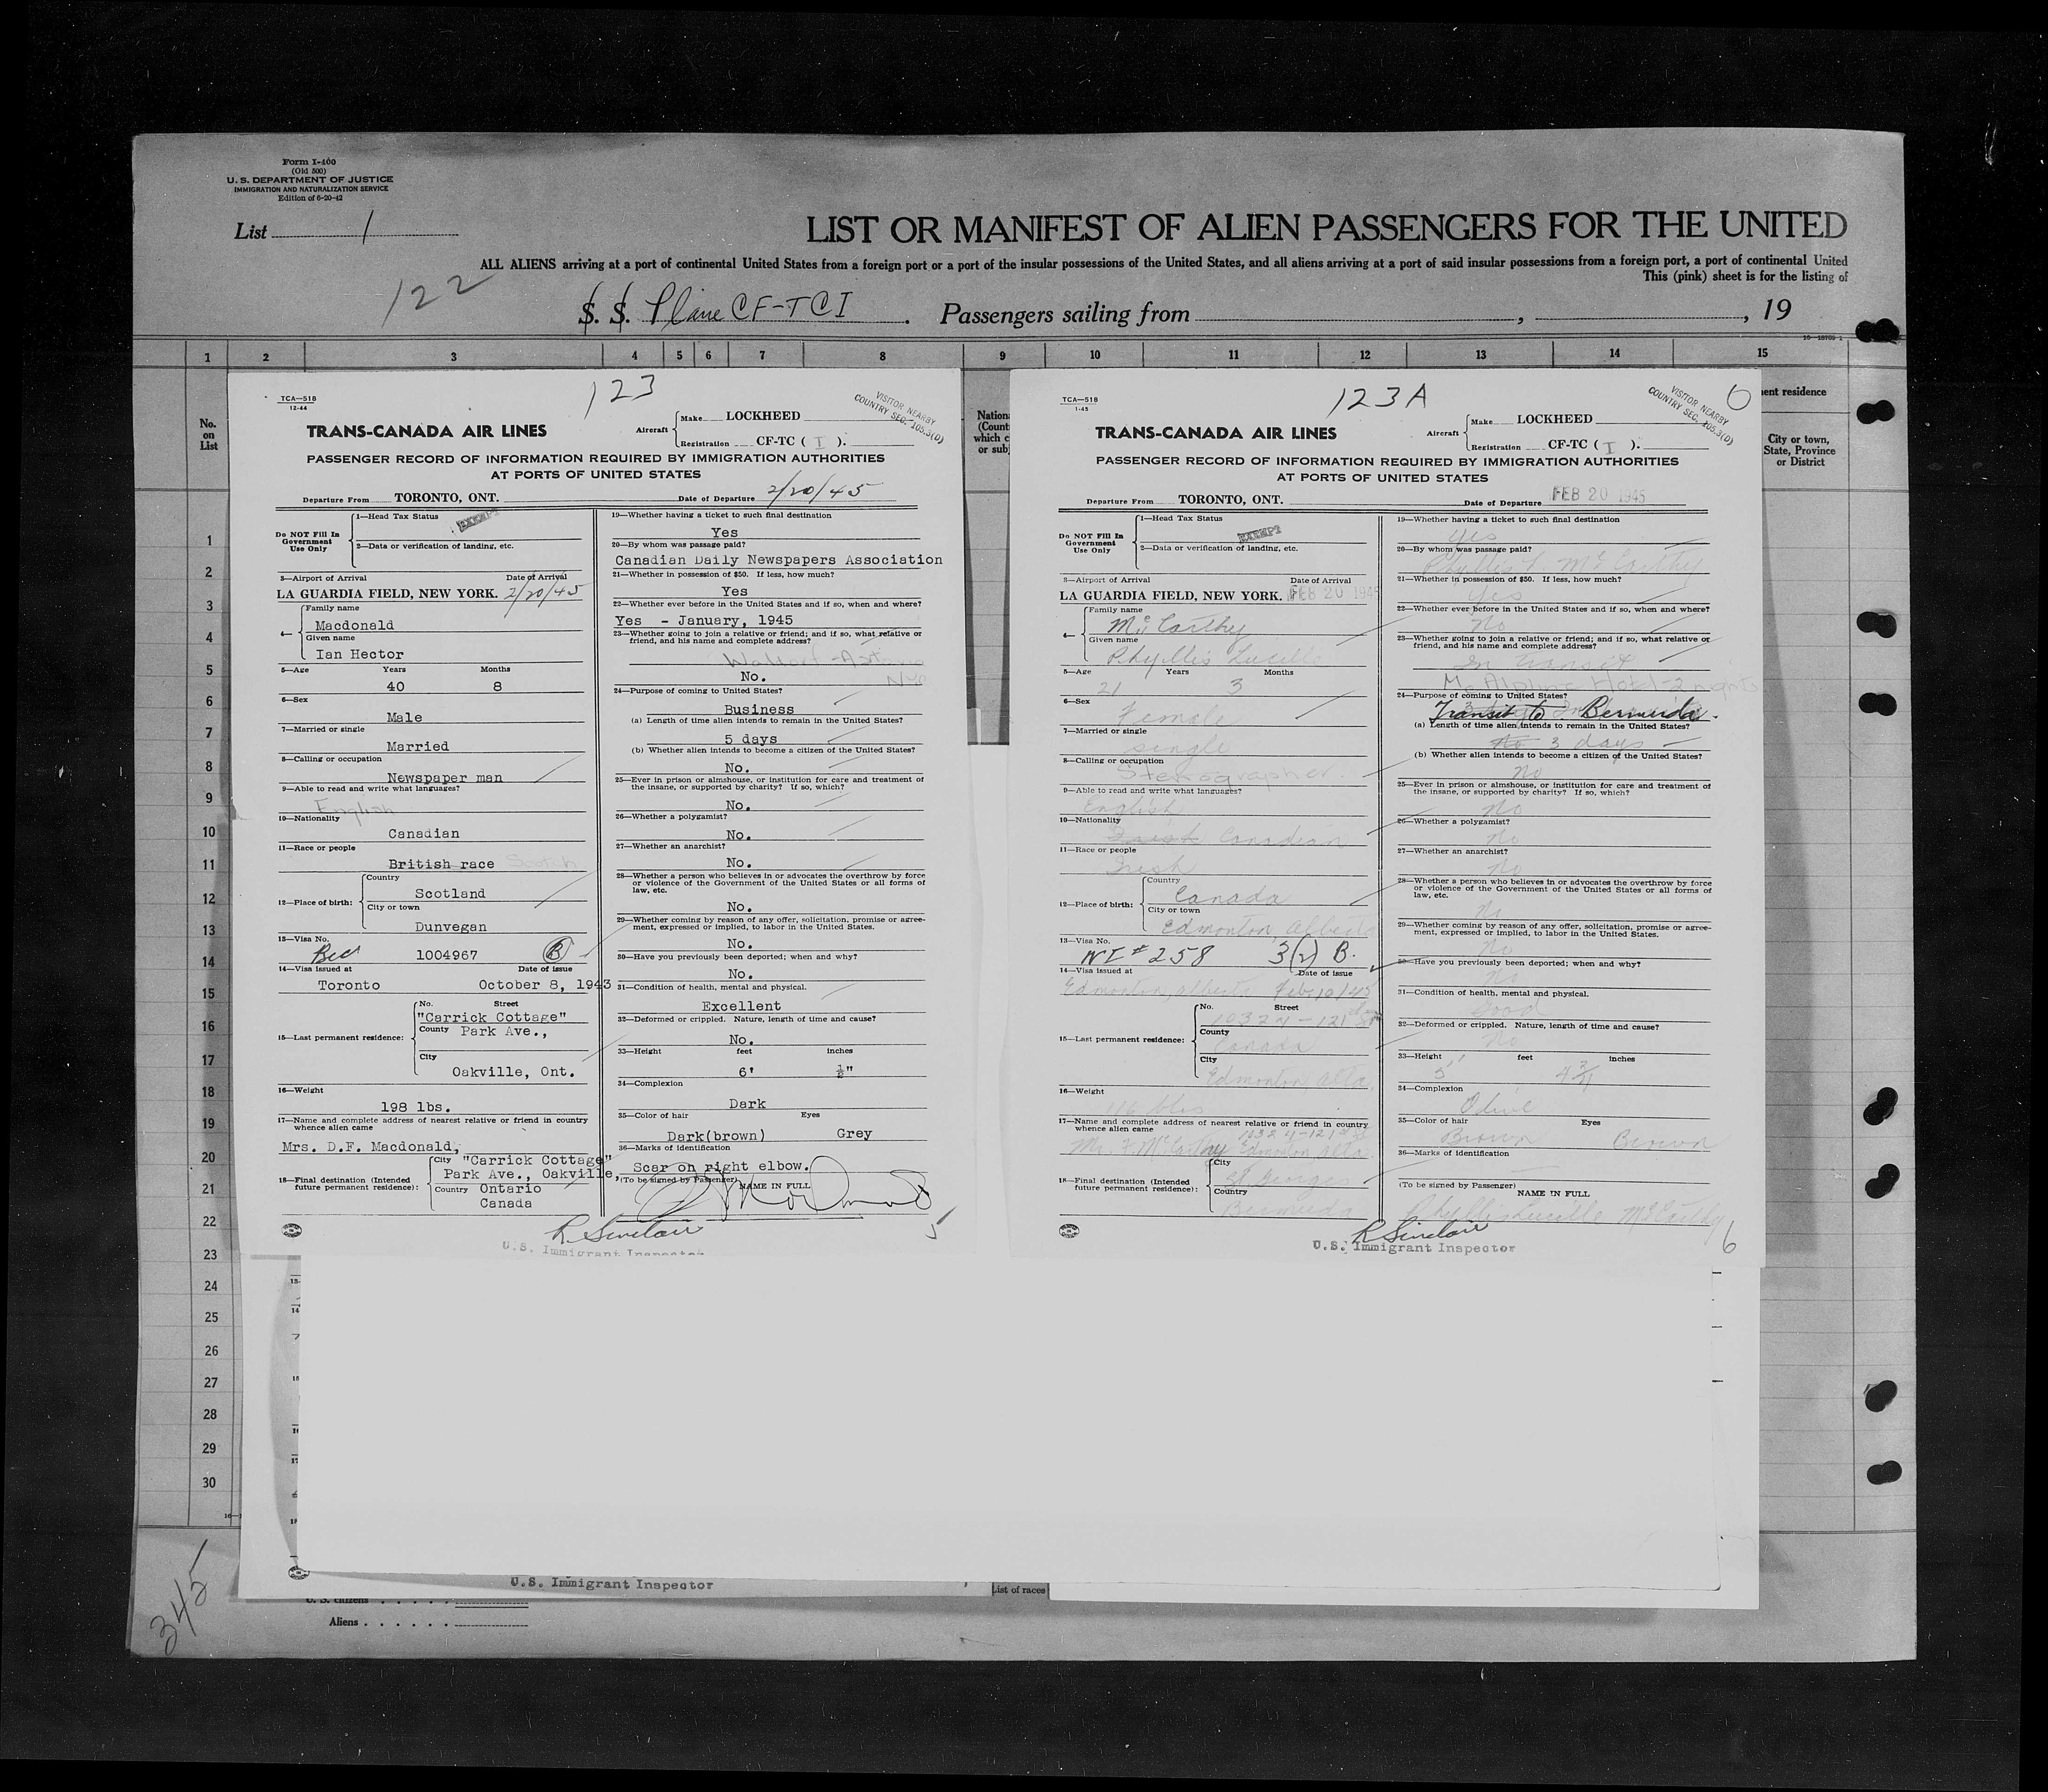 Form I-400
(Old 500)
U. S. DEPARTMENT OF JUSTICE
IMMIGRATION AND NATURALIZATION SERVICE
Edition of 6-20-42
List 1
LIST OR MANIFEST OF ALIEN PASSENGERS FOR THE UNITED
ALL ALIENS arriving at a port of continental United States from a foreign port or a port of the insular possessions of the United States, and all aliens arriving at a port of said insular possessions from a foreign port, a port of continental United
This (pink) sheet is for the listing of
122
S. S. Plane CF-TCI . Passengers sailing from , , 19
1 2 3 4 5 6 7 8 9 10 11 12 13 14 15
No.
on
List
1
2
3
4
5
6
7
8
9
10
11
12
13
14
15
16
17
18
19
20
21
22
23
24
25
26
27
28
29
30
123
TCA—518
12-44
VISITOR NEARBY
COUNTRY SEC. 105.3(D)
TRANS-CANADA AIR LINES
Aircraft
Make LOCKHEED
Registration CF-TC ( I ).
PASSENGER RECORD OF INFORMATION REQUIRED BY IMMIGRATION AUTHORITIES
AT PORTS OF UNITED STATES
Departure From TORONTO, ONT. Date of Departure 2/20/45
Do NOT Fill In
Government
Use Only
1—Head Tax Status EXEMPT
2—Data or verification of landing, etc.
3—Airport of Arrival Date of Arrival
LA GUARDIA FIELD, NEW YORK. 2/20/45
4—
Family name
Macdonald
Given name
Ian Hector
5—Age Years Months
40 8
6—Sex
Male
7—Married or single
Married
8—Calling or occupation
Newspaper man
9—Able to read and write what languages?
English
10—Nationality
Canadian
11—Race or people
British race Scotch
12—Place of birth:
Country
Scotland
City or town
Dunvegan
13—Visa No.
1004967 B
14—Visa issued at Date of issue
Toronto October 8, 1943
15—Last permanent residence:
No. Street
"Carrick Cottage"
County Park Ave.,
City
Oakville, Ont.
16—Weight
198 lbs.
17—Name and complete address of nearest relative or friend in country
whence alien came
Mrs. D.F. Macdonald,
18—Final destination (Intended
future permanent residence):
City "Carrick Cottage"
Park Ave., Oakville,
Country Ontario
Canada
19—Whether having a ticket to such final destination
Yes
20—By whom was passage paid?
Canadian Daily Newspapers Association
21—Whether in possession of $50. If less, how much?
Yes
22—Whether ever before in the United States and if so, when and where?
Yes - January, 1945
23—Whether going to join a relative or friend; and if so, what relative or
friend, and his name and complete address?
No.
24—Purpose of coming to United States?
Business
(a) Length of time alien intends to remain in the United States?
5 days
(b) Whether alien intends to become a citizen of the United States?
No.
25—Ever in prison or almshouse, or institution for care and treatment of
the insane, or supported by charity? If so, which?
No.
26—Whether a polygamist?
No.
27—Whether an anarchist?
No.
28—Whether a person who believes in or advocates the overthrow by force
or violence of the Government of the United States or all forms of
law, etc.
No.
29—Whether coming by reason of any offer, solicitation, promise or agree-
ment, expressed or implied, to labor in the United States.
No.
30—Have you previously been deported; when and why?
No.
31—Condition of health, mental and physical.
Excellent
32—Deformed or crippled. Nature, length of time and cause?
No.
33—Height feet inches
6' ½"
34—Complexion
Dark
35—Color of hair Eyes
Dark(brown) Grey
36—Marks of identification
Scar on right elbow.
(To be signed by Passenger)
NAME IN FULL
R Sinclair
U.S. Immigrant Inspector
5
123A
6
TCA—518
1-45
VISITOR NEARBY
COUNTRY SEC. 105.3(D)
TRANS-CANADA AIR LINES
Aircraft
Make LOCKHEED
Registration CF-TC ( I ).
PASSENGER RECORD OF INFORMATION REQUIRED BY IMMIGRATION AUTHORITIES
AT PORTS OF UNITED STATES
Departure From TORONTO, ONT. Date of Departure FEB 20 1945
Do NOT Fill In
Government
Use Only
1—Head Tax Status EXEMPT
2—Data or verification of landing, etc.
3—Airport of Arrival Date of Arrival
LA GUARDIA FIELD, NEW YORK. FEB 20 1945
4—
Family name
McCarthy
Given name
Phyllis Lucille
5—Age Years Months
21 3
6—Sex
Female
7—Married or single
single
8—Calling or occupation
Stenographer
9—Able to read and write what languages?
English
10—Nationality
Irish Canadian
11—Race or people
Irish
12—Place of birth:
Country
Canada
City or town
Edmonton, Alberta
13—Visa No.
NI # 258 3(2) B.
14—Visa issued at Date of issue
Edmonton, Alberta Feb. 10/45
15—Last permanent residence:
No. Street
10324 - 121 st
County
Canada
City
Edmonton, Alta.
16—Weight
116 lbs
17—Name and complete address of nearest relative or friend in country
whence alien came 10324-121 st
Mr F. McCarthy Edmonton Alta.
18—Final destination (Intended
future permanent residence):
City
St. Georges
Country
Bermuda
19—Whether having a ticket to such final destination
Yes
20—By whom was passage paid?
Phyllis L. McCarthy
21—Whether in possession of $50. If less, how much?
Yes
22—Whether ever before in the United States and if so, when and where?
No
23—Whether going to join a relative or friend; and if so, what relative or
friend, and his name and complete address?
In transit
McAlpin Hotel - 2 nights
24—Purpose of coming to United States?
Transit to Bermuda.
(a) Length of time alien intends to remain in the United States?
No 3 days
(b) Whether alien intends to become a citizen of the United States?
No
25—Ever in prison or almshouse, or institution for care and treatment of
the insane, or supported by charity? If so, which?
No
26—Whether a polygamist?
No
27—Whether an anarchist?
No
28—Whether a person who believes in or advocates the overthrow by force
or violence of the Government of the United States or all forms of
law, etc.
No
29—Whether coming by reason of any offer, solicitation, promise or agree-
ment, expressed or implied, to labor in the United States.
No
30—Have you previously been deported; when and why?
No
31—Condition of health, mental and physical.
Good
32—Deformed or crippled. Nature, length of time and cause?
No
33—Height feet inches
5'
34—Complexion
Olive
35—Color of hair Eyes
Brown Brown
36—Marks of identification
(To be signed by Passenger)
NAME IN FULL
Phyllis Lucille McCarthy
R Sinclair
U.S. Immigrant Inspector
6
ent residence
City or town,
State, Province
or District
U.S. Immigrant Inspector
List of races
U. S. citizens
Aliens
345